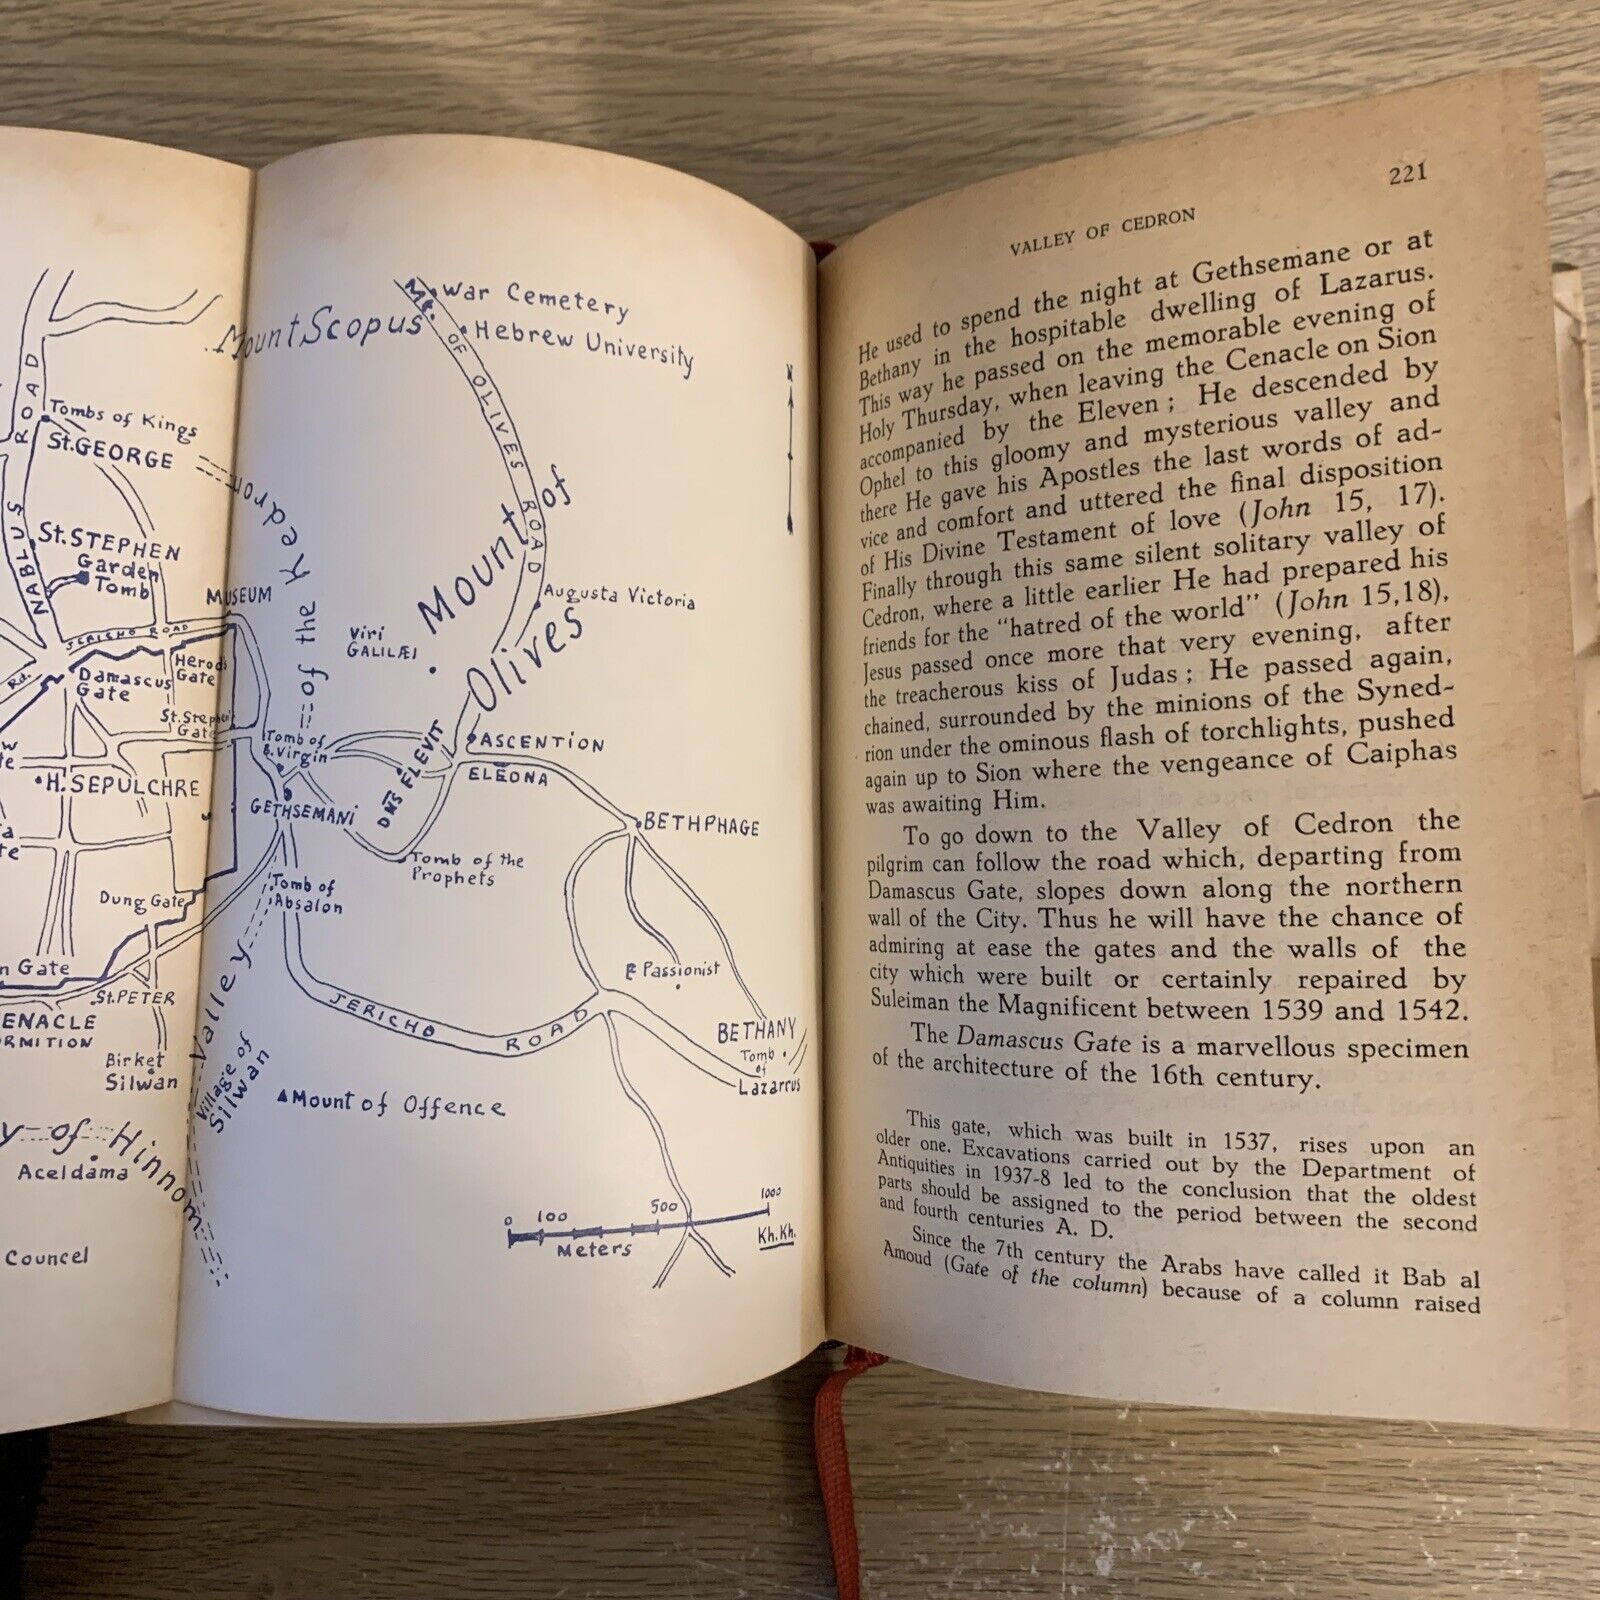 War Cemetery
Mount Scopus
Mt. OF OLIVES ROAD
Hebrew University
N
ROAD
Tombs of Kings
St. GEORGE
NABLUS
St. STEPHEN
Garden
Tomb
MUSEUM
JERICHO ROAD
Rd.
Damascus
Gate
Herod's
Gate
St. Stephen
Gate
Valley of the Kedron
Viri
GALILÆI
Mount of
Olives
Augusta Victoria
Tomb of
B. Virgin
DNS FLEVIT
ASCENTION
ELEONA
H. SEPULCHRE
GETHSEMANI
BETHPHAGE
Tomb of the
Prophets
Tomb of
Absalon
Dung Gate
n Gate
St. PETER
ENACLE
ORMITION
Birket
Silwan
Village of
Silwan
JERICHO ROAD
Passionist
BETHANY
Tomb
of
Lazarrus
Mount of Offence
y of Hinnom
Aceldama
Councel
0 100 500 1000
Meters
Kh. Kh.
221
VALLEY OF CEDRON
He used to spend the night at Gethsemane or at
Bethany in the hospitable dwelling of Lazarus.
This way he passed on the memorable evening of
Holy Thursday, when leaving the Cenacle on Sion
accompanied by the Eleven ; He descended by
Ophel to this gloomy and mysterious valley and
there He gave his Apostles the last words of ad-
vice and comfort and uttered the final disposition
of His Divine Testament of love (John 15, 17).
Finally through this same silent solitary valley of
Cedron, where a little earlier He had prepared his
friends for the "hatred of the world" (John 15,18),
Jesus passed once more that very evening, after
the treacherous kiss of Judas ; He passed again,
chained, surrounded by the minions of the Syned-
rion under the ominous flash of torchlights, pushed
again up to Sion where the vengeance of Caiphas
was awaiting Him.
To go down to the Valley of Cedron the
pilgrim can follow the road which, departing from
Damascus Gate, slopes down along the northern
wall of the City. Thus he will have the chance of
admiring at ease the gates and the walls of the
city which were built or certainly repaired by
Suleiman the Magnificent between 1539 and 1542.
The Damascus Gate is a marvellous specimen
of the architecture of the 16th century.
This gate, which was built in 1537, rises upon an
older one. Excavations carried out by the Department of
Antiquities in 1937-8 led to the conclusion that the oldest
parts should be assigned to the period between the second
and fourth centuries A. D.
Since the 7th century the Arabs have called it Bab al
Amoud (Gate of the column) because of a column raised